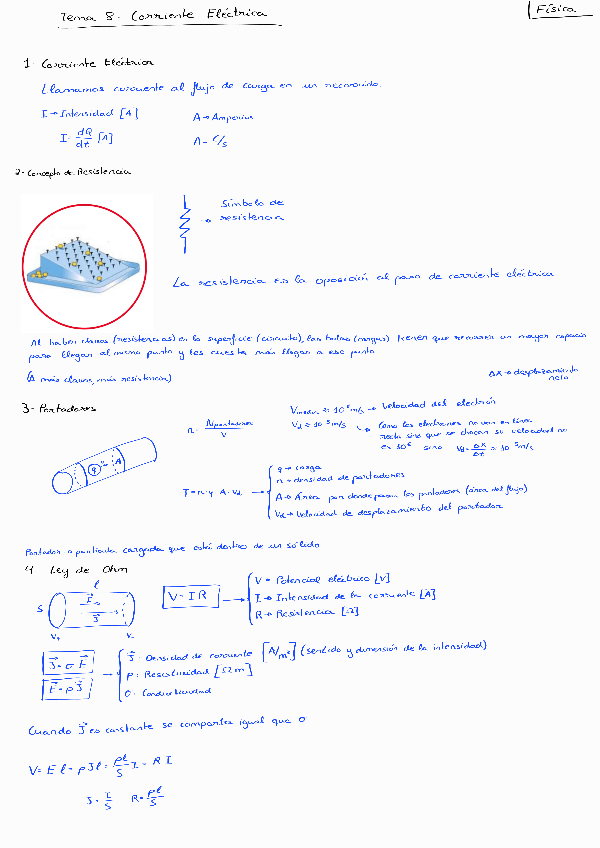 Tema 8. Corriente Eléctrica
Física
1. Corriente Eléctrica
Llamamos corriente al flujo de carga en un recorrido.
I → Intensidad [A]
A → Amperius
I = dQ/dt [A]
A = C/s
2. Concepto de Resistencia
Símbolo de
→ resistencia
La resistencia es la oposición al paso de corriente eléctrica
Al haber clavos (resistencias) en la superficie (circuito), las bolas (cargas) tienen que recorrer un mayor espacio
para llegar al mismo punto y les cuesta más llegar a ese punto
(A más clavos, más resistencia)
Δx → desplazamiento
neto
3. Portadores
n = Nportadores/V
→ Velocidad del electrón
→ Como los electrones no van en línea
recta sino que se chocan su velocidad no
es 10⁶ sino Vd = Δx/Δt
q A
I = n q A · Vd →
q → carga
n → densidad de portadores
A → Área por donde pasan los portadores (área del flujo)
Vd → Velocidad de desplazamiento del portador
Portador → partícula cargada que está dentro de un sólido
4 Ley de Ohm
l
S E J
V+ V-
V = I R →
V = Potencial eléctrico [V]
I → Intensidad de la corriente [A]
R → Resistencia [Ω]
J = σ E
E = ρ J
J: Densidad de corriente [A/m²] (sentido y dimensión de la intensidad)
ρ: Resistividad [Ωm]
σ: Conductividad
Cuando J es constante se comporta igual que
V = E l = ρ J l = ρl/S I = R I
J = I/S R = ρl/S